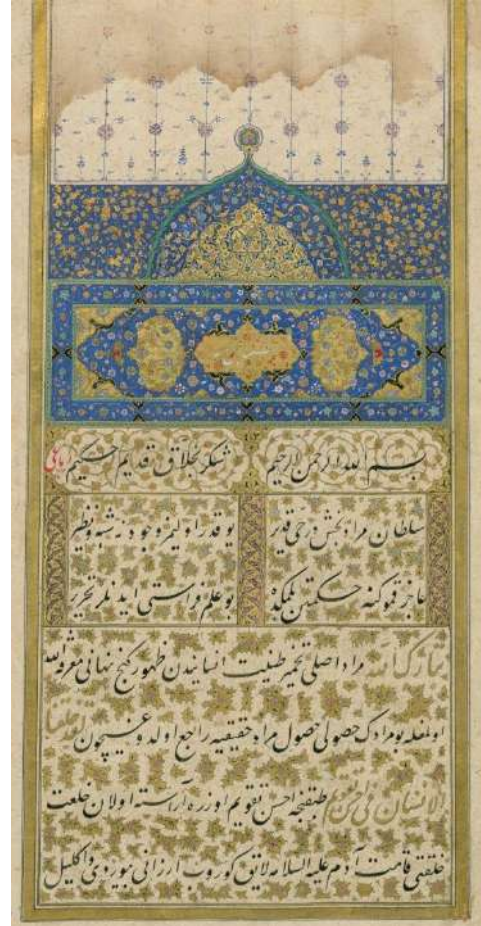 بسم الله الرحمن الرحيم شكر بخلاق قديم حكيم رباعى
سلطان مراد بخش درحى قدير بو قدر اوليمز وجودنه شبه ونظير
عاجز قمو كنه حكمتن بلمكده بو علم فراستى ايدنلر تحرير
تبارك الله مراد اصلى تخمير طينت انساندن ظهور كنج نهانى معرفة الله
اولمغله بو مرادك حصولى حصول مراد حقيقيه راجع اولدوغيچون لقد خلقنا
الانسان فى احسن تقويم طبقنجه احسن تقويم اوزره آراسته اولان خلعت
خلقتى قامت آدم عليه السلامه لايق كوروب ارزانى بيوردى واكليل